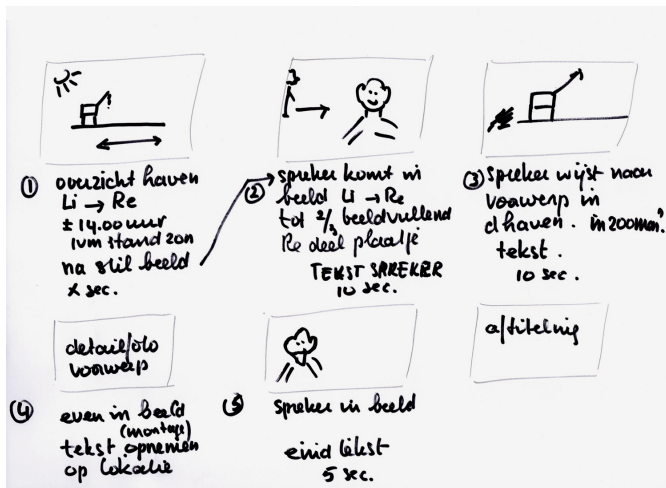 ① overzicht haven
Li → Re
± 14.00 uur
ivm stand zon
na stil beeld
x sec.
② spreker komt in
beeld Li → Re
tot 2/3 beeldvullend
Re deel plaatje
TEKST SPREKER
10 sec.
③ Spreker wijst naar
voorwerp in
d haven. inzoomen?
tekst.
10 sec.
detail foto
voorwerp
④ even in beeld
(montage)
tekst opnemen
op lokatie
⑤ Spreker in beeld
eind tekst
5 sec.
aftiteling